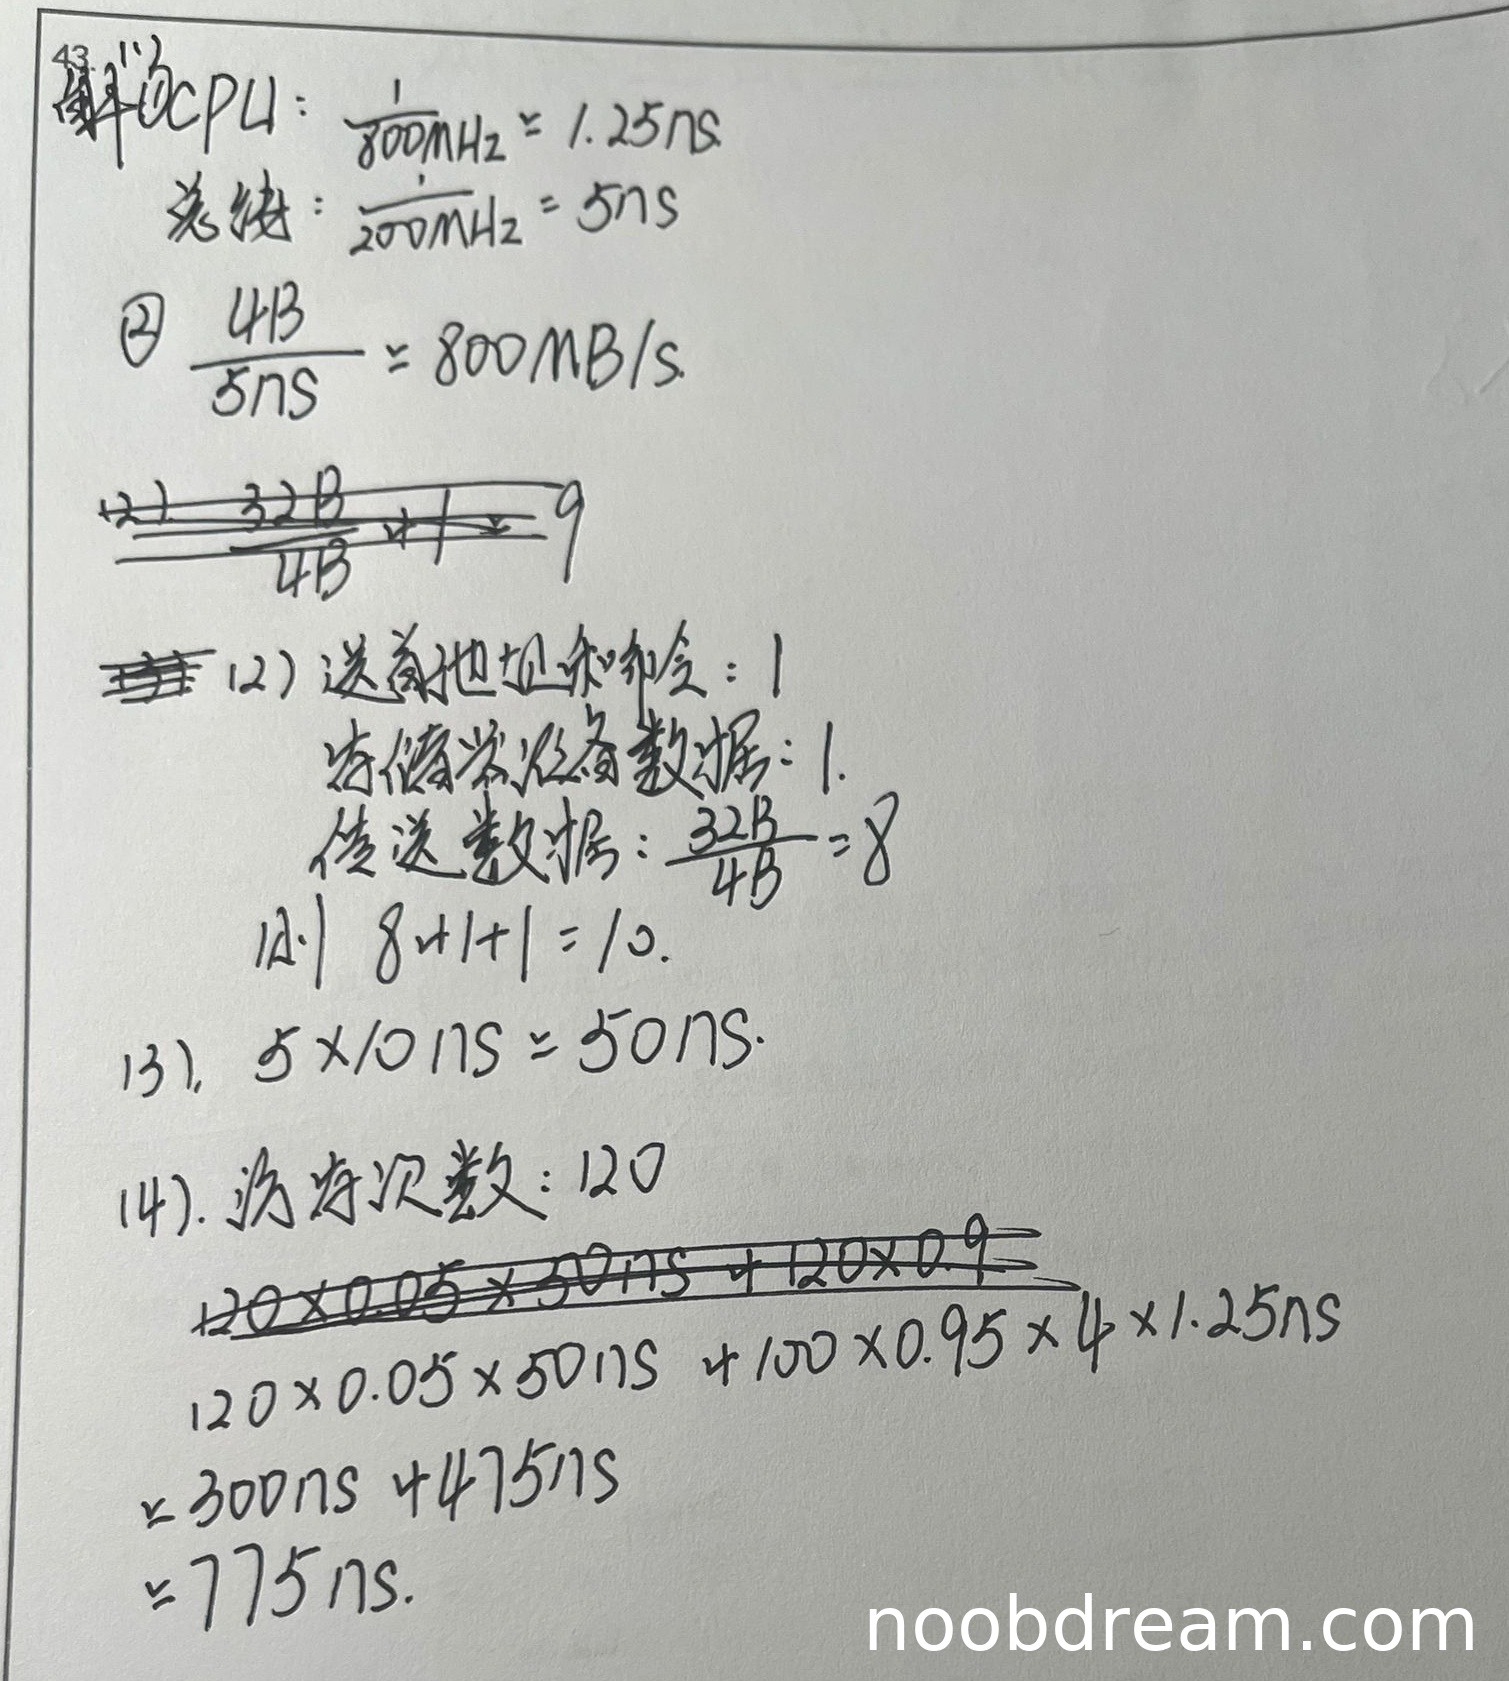 43. (1)
解①CPU: 1/800MHz = 1.25ns
总线: 1/200MHz = 5ns
② 4B/5ns = 800MB/s.
(2). 32B/4B + 1 = 9
(2) 送首地址和命令: 1
存储器准备数据: 1.
传送数据: 32B/4B = 8
则 8+1+1 = 10.
(3). 5×10ns = 50ns.
(4). 访存次数: 120
120×0.05×50ns + 120×0.9
120×0.05×50ns + 100×0.95×4×1.25ns
= 300ns + 475ns
= 775ns.
noobdream.com